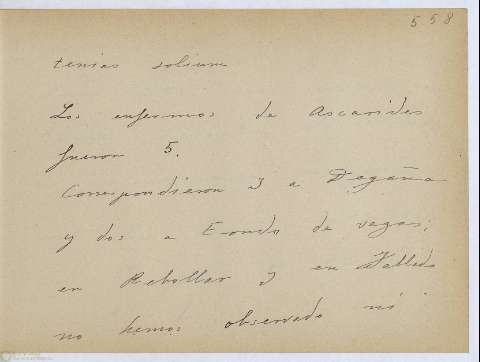 558
tenias solium
Los enfermos de Ascarides
fueron 5.
Correspondieron 3 a Degaña
y dos a E-ondo de vegas;
en Rebollar y en Valledo
no hemos observado ni